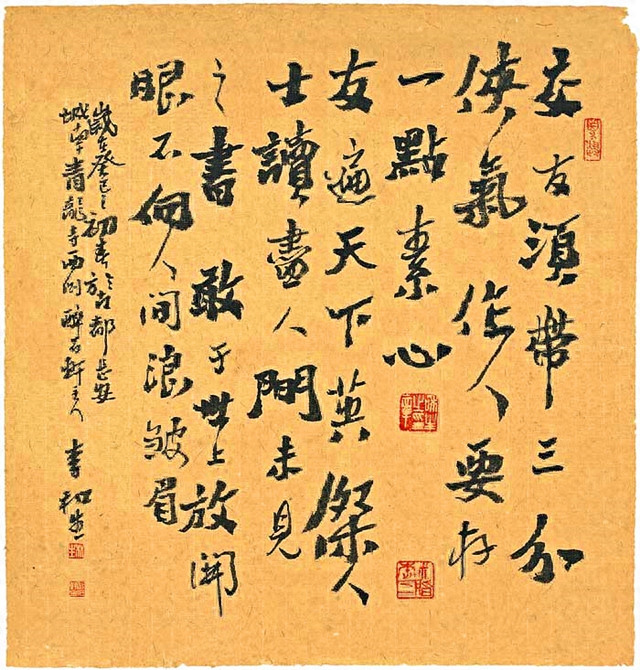 交友須帶三分
俠氣作人要存
一點素心
友遍天下英傑人
士讀盡人間未見
之書敢于世上放開
眼不向人間浪皺眉
歲在癸巳之初春於古都長安
城南青龍寺西側醉石軒主人李和生